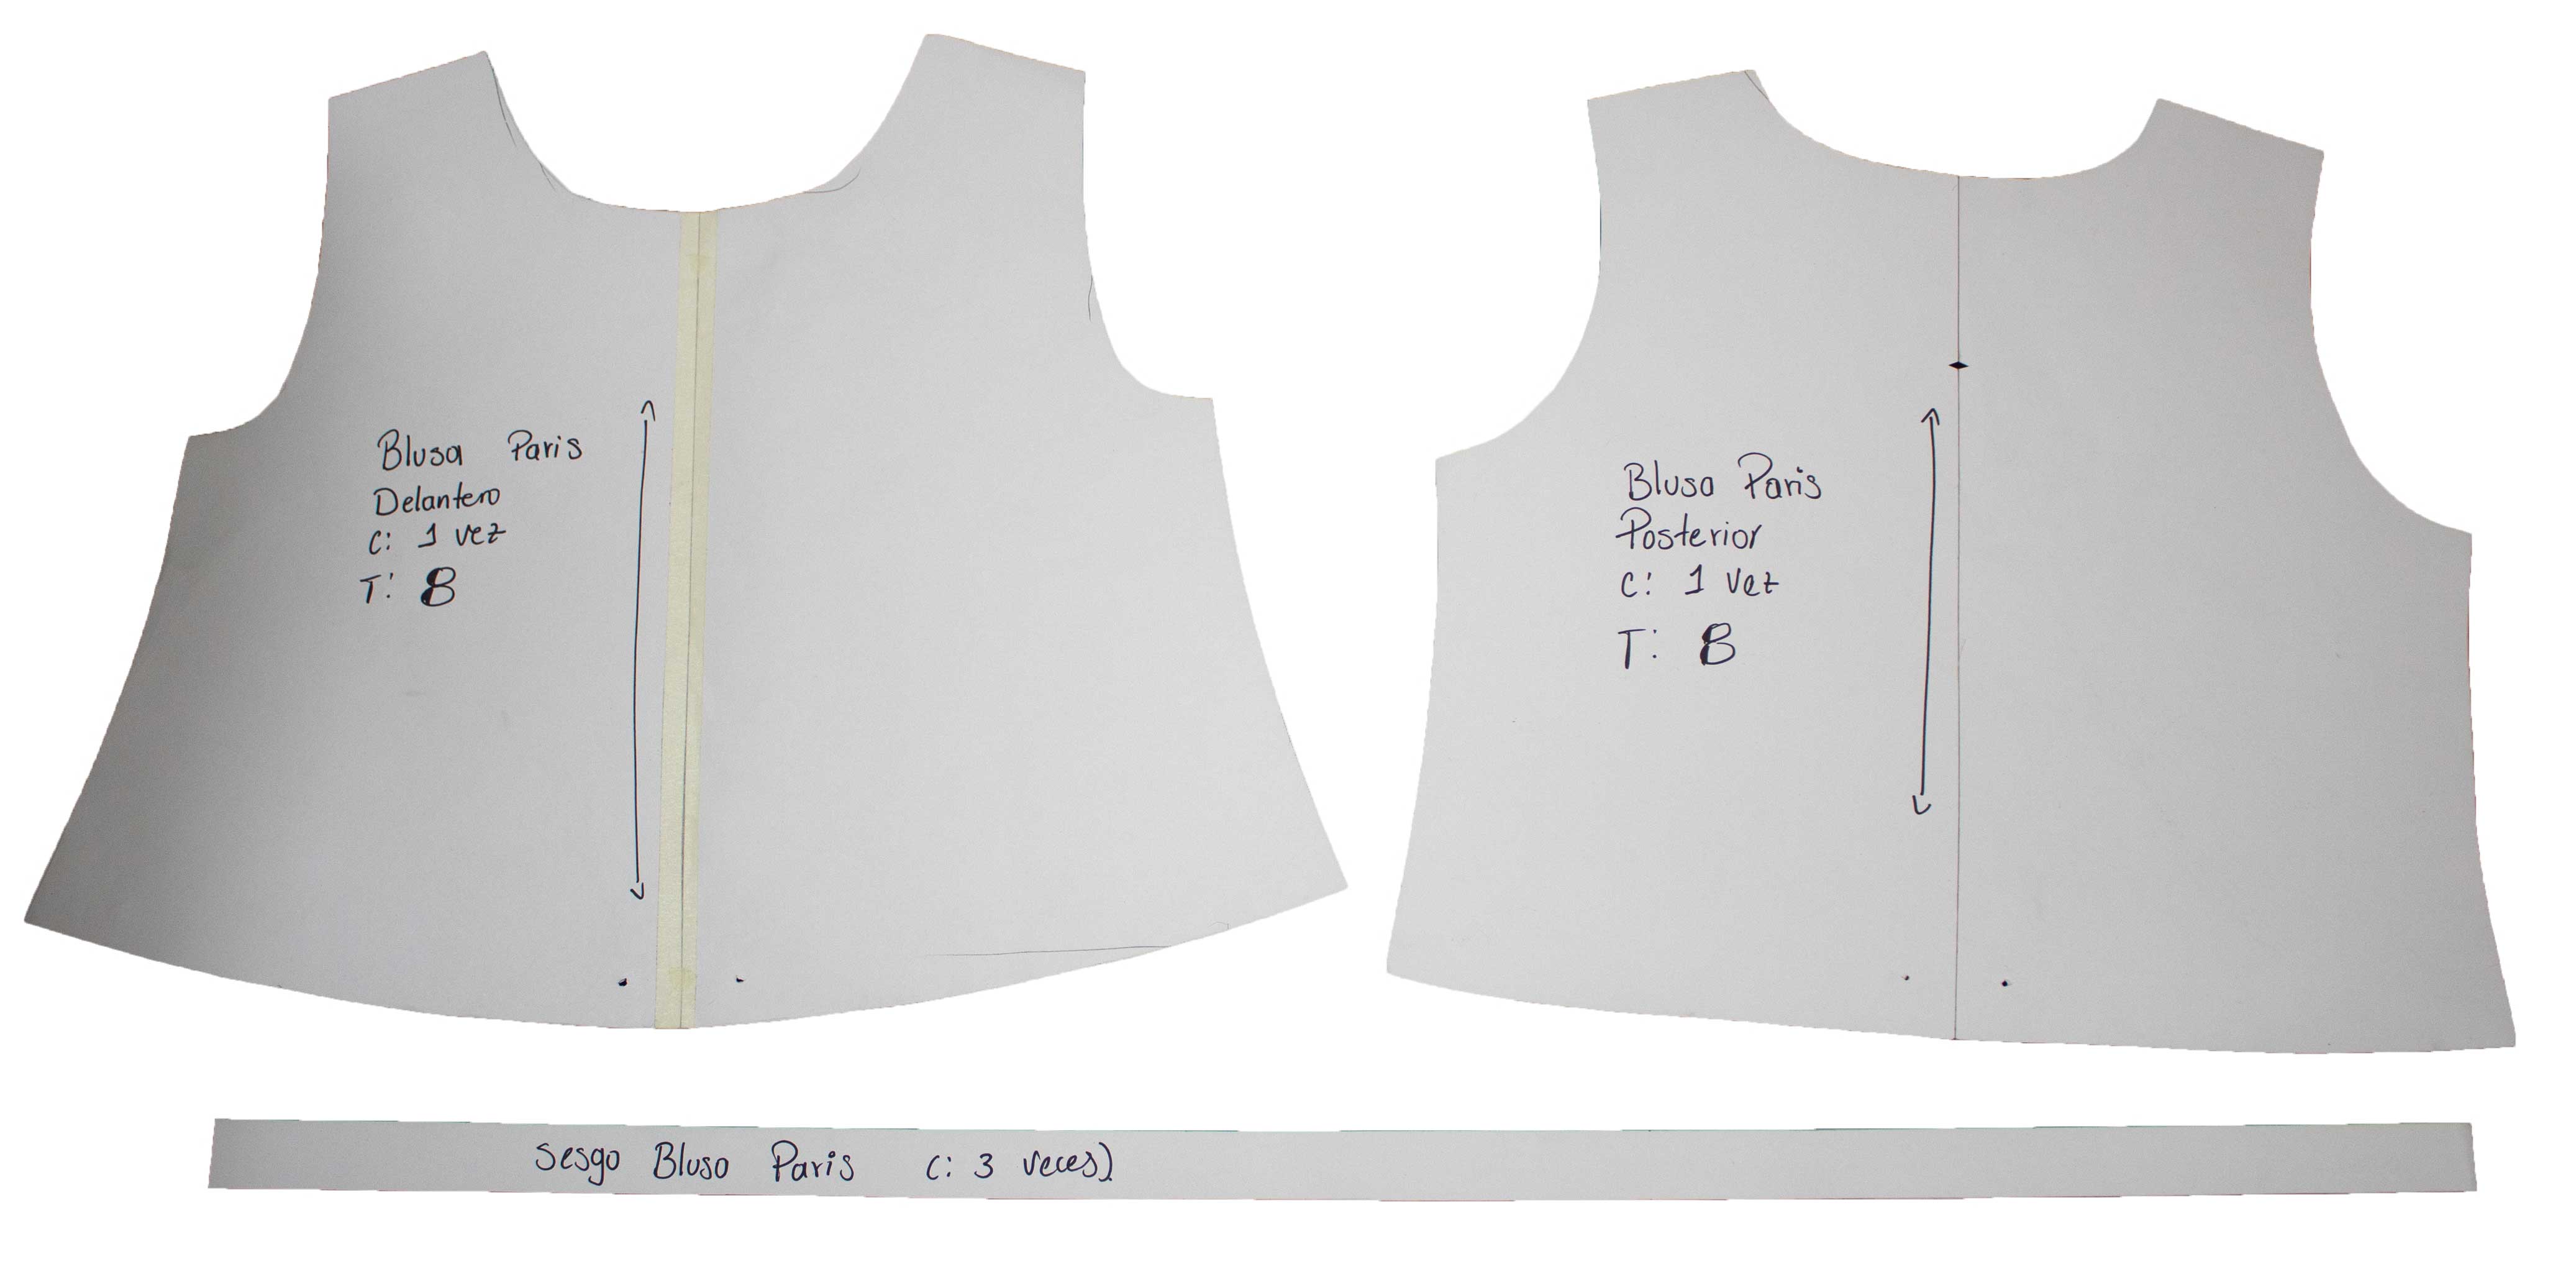 Blusa Paris
Delantero
C: 1 vez
T: 8
Blusa Paris
Posterior
C: 1 vez
T: 8
Sesgo Blusa Paris C: 3 veces)